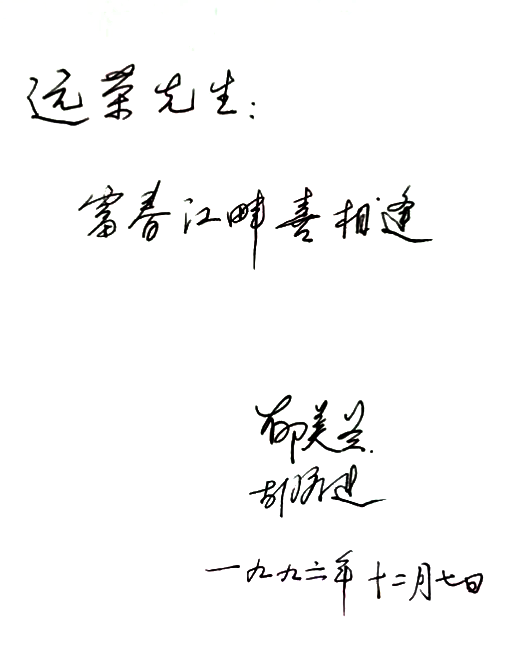 远荣先生：
富春江畔喜相逢
郁美兰
胡
一九九六年十二月七日